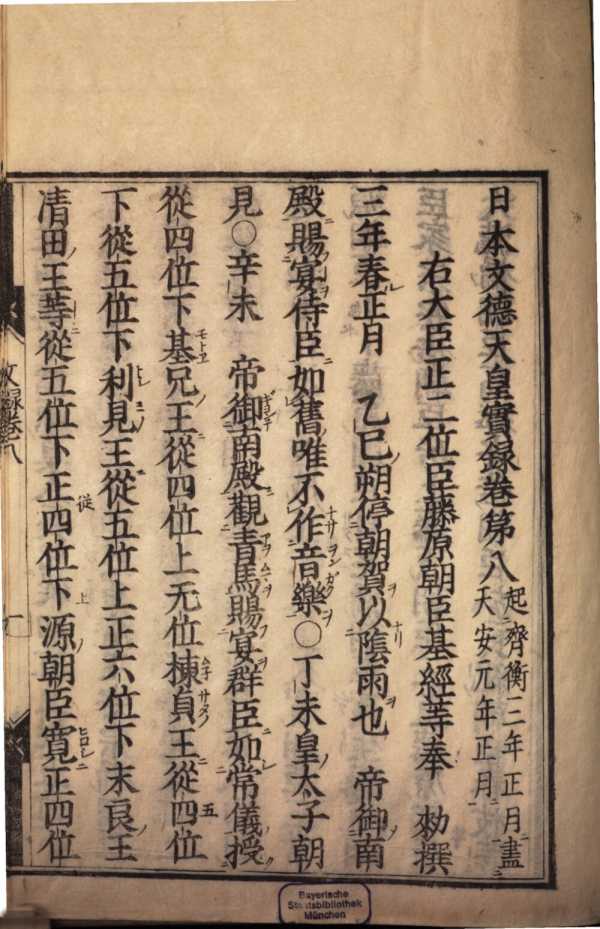 日本文德天皇實録卷第八 起齊衡三年正月盡天安元年正月
右大臣正二位臣藤原朝臣基經等奉 勅撰
三年春正月 乙巳朔停朝賀以陰雨也 帝御南
殿賜宴侍臣如舊唯不作音樂○丁未皇太子朝
見○辛未 帝御南殿觀青馬賜宴群臣如常儀授
從四位下基兄王從四位上无位棟貞王從四位
下從五位下利見王從五位上正六位下末良王
清田王等從五位下正四位下源朝臣寛正四位
Bayerische
Staatsbibliothek
München